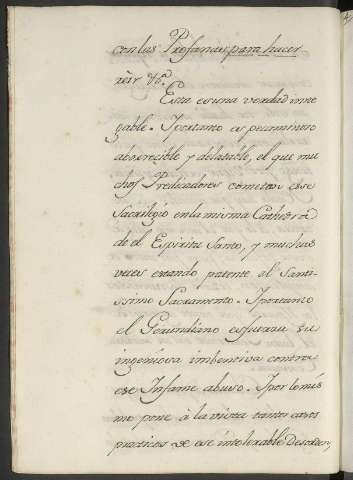 con las Profanas para hacer
reir &ª.
Esta es una verdad inne
gable. Iportanto es pecaminoso
aborrecible y delatable, el que mu
chos Predicadores cometan ese
Sacrilegio en la misma Cathedra
de el Espiritu Santo, y muchas
veces estando patente el Santi-
ssimo Sacramento. Iportanto
el Gerundiano esfuerza su
ingeniosa imbentiva contra
ese Infame abuso. Ipor lo mis
mo pone à la vista tantos casos
practicos de ese intolerable Desorden,